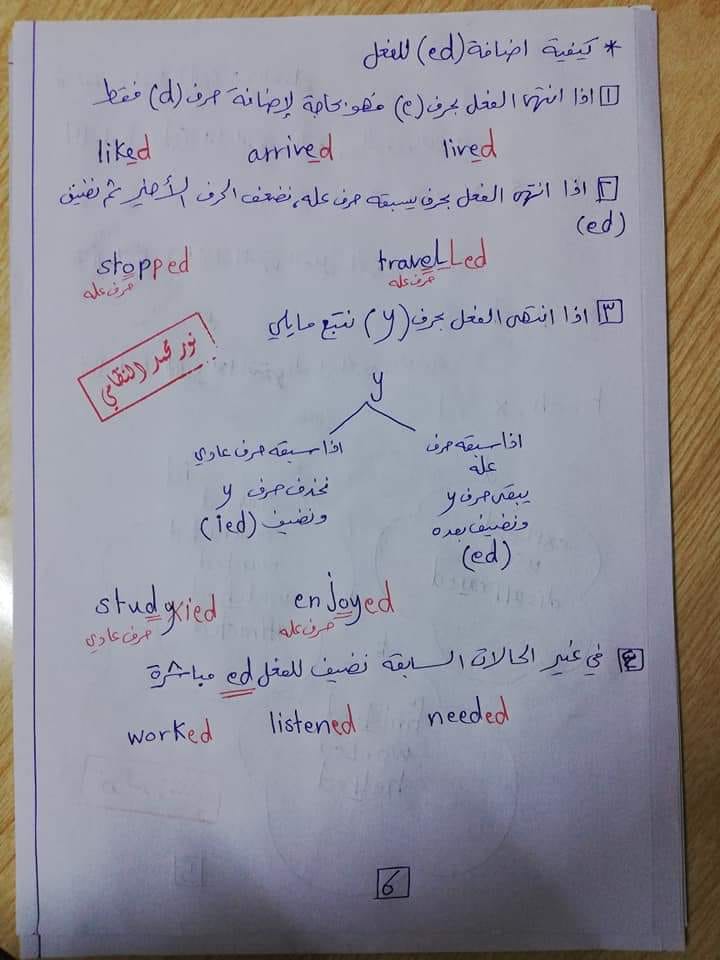 * كيفية اضافة (ed) للفعل
١ اذا انتهى الفعل بحرف (e) فهو بحاجة لإضافة حرف (d) فقط
liked arrived lived
٢ اذا انتهى الفعل بحرف يسبقه حرف عله، نضعف الحرف الأخير ثم نضيف
(ed)
stopped travelled
حرف عله حرف عله
٣ اذا انتهى الفعل بحرف (y) نتبع مايلي
نور محمد النقامي
y
اذا سبقه حرف
عله
يبقى حرف y
ونضيف بعده
(ed)
اذا سبقه حرف عادي
نحذف حرف y
ونضيف (ied)
studyied enjoyed
حرف عادي حرف عله
٤ في غير الحالات السابقة نضيف للفعل ed مباشرة
worked listened needed
6